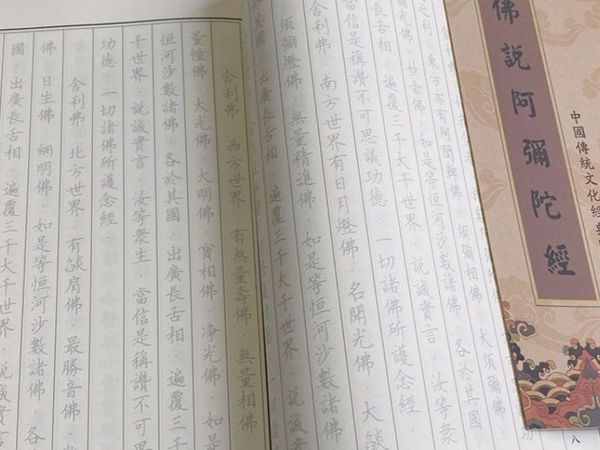 佛說阿彌陀經
中國傳統文化經典
東方亦有阿閦鞞佛·須彌相佛·大須彌佛
須彌光佛·妙音佛·如是等恒河沙數諸佛·各於其國
長舌相·遍覆三千大千世界·說誠實言·汝等眾
當信是稱讚不可思議功德·一切諸佛所護念經
舍利弗·南方世界有日月燈佛·名聞光佛·大燄
須彌燈佛·無量精進佛·如是等恒河沙數諸佛
出廣長舌相·遍覆三千大千世界·說誠
舍利弗·西方世界·有無量壽佛·無量相佛
量幢佛·大光佛·大明佛·寶相佛·淨光佛·如是
恒河沙數諸佛·各於其國·出廣長舌相·遍覆三千
千世界·說誠實言·汝等眾生·當信是稱讚不可思
功德·一切諸佛所護念經
舍利弗·北方世界·有燄肩佛·最勝音佛
佛·日生佛·網明佛·如是等恒河沙數諸佛·各
國·出廣長舌相·遍覆三千大千世界·說誠實
八